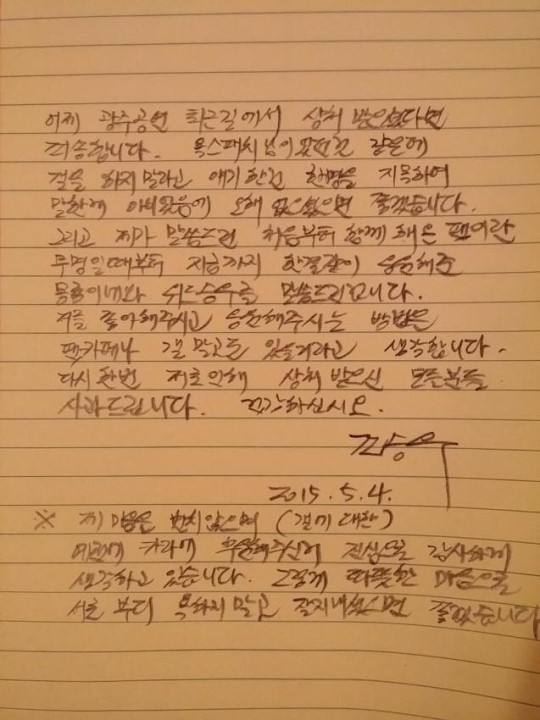 어제 광주공연 퇴근길에서 상처 받으셨다면
죄송합니다. 같은데
걸을 하지말라고 얘기한건 한명을 지목하여
말한게 아니었음에 오해 없으셨으면 좋겠습니다.
그리고 제가 말씀드린 처음부터 함께 해온 팬이란
무명일때부터 지금까지 한결같이 응원해준
말씀드린겁니다.
저를 좋아해주시고 응원해주시는 방법은
팬카페나 갤 말고도 있을거라고 생각합니다.
다시한번 저로인해 상처 받으신 모든분들
사과드립니다. 건강하십시오.
2015.5.4.
※ 제 마음은 변치않으며 (갤에 대한)
예전에 무칠해주신거 진심으로 감사하게
생각하고 있습니다. 그렇게 따뜻한 마음으로
서로 부디 욕하지말고 잘지내셨으면 좋겠습니다